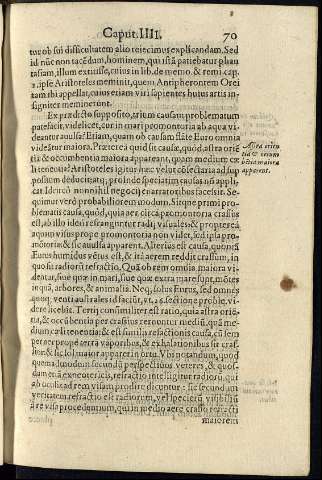 Caput. IIII. 70
tur ob sui difficultatem alio reiecimus explicandam. Sed
id nũc non tacẽdam, hominem, qui istã patiebatur phan
tasiam, illum extitisse, cuius in lib. de memo. & remi. cap.
ipse Aristoteles meminit, quem Antipherontem Orei
tam ibi appellat, cuius etiam viri sapientes huius artis in-
signiter meminerunt.
Ex prædicto supposito, trium causam problematum
patefacit, videlicet, cur in mari promontoria ab aqua vi-
deantur auulsa? Etiam, quam ob causam flãte Euro omnia
videãtur maiora. Præterea quid sit causæ, quòd astra oriẽ
tia & occumbentia maiora appareant, quam medium cæ-
li tenentia? Aristoteles igitur hæc velut obiectaria ad sup
positum deducit
cat. Idcircò nonnihil negocij enarratoribus facessit. Se-
quimur verò probabiliorem modum. Sitque primi pro-
blematis causa, quòd, quia aer circa promontoria crassus
est, ab illo ideò refranguntur radij visuales: & proptereà,
aquam visus prope promontoria non videt, sed ipsa pro-
montoria: & sic auulsa apparent. Alterius est causa, quoniã
Eurus humidus vẽtus est, & ita aerem reddit crassum, in
quo fit radiorũ refractio. Quã ob rem omnia maiora vi-
dentur, siue quæ in mari, siue quæ extra mare sunt, mõtes
inquã, arbores, & animalia. Neq; solus Eurus, sed omnes
quoq; venti australes id faciũt, vt. 26. sectione proble. vi-
dere licebit. Tertij consimiliter est ratio, quia astra oriẽ-
tia, & occũbentia per crassius cernuntur mediũ, quã me-
dium cæli tenentia: & est similis refractionis causa, cũ sem
per aer prope terrã vaporibus, & exhalationibus sit cras-
sior: & sic sol maior apparet in ortu. Vbi notandum, quòd
quemadmodum secundũ perspectiuos veteres, & quos-
dam etiã exneotericis, refractio intelligitur radiorũ, qui
ab oculi ad rem visam producẽ dicuntur: sic secundum
veritatem refractio est radiorum, vel specierũ visibiliũ
à re visa procedentium, qui in medio aere crasso refracti
maiorem
Astra oriẽ
tia & occum
bẽtia maiora
apparent.